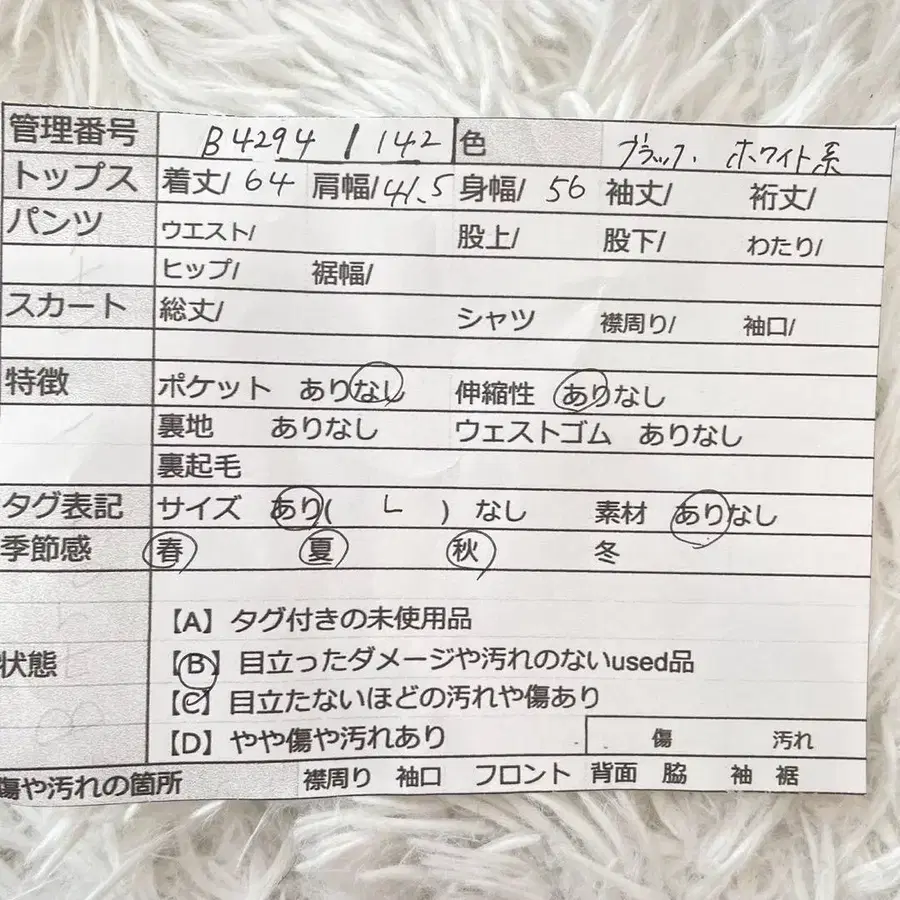 管理番号 B4294 / 142 色 ブラック. ホワイト系
トップス 着丈/ 64 肩幅/ 41.5 身幅/ 56 袖丈/ 裄丈/
パンツ ウエスト/ 股上/ 股下/ わたり/
ヒップ/ 裾幅/
スカート 総丈/ シャツ 襟周り/ 袖口/
特徴 ポケット ありなし 伸縮性 ありなし
裏地 ありなし ウェストゴム ありなし
裏起毛
タグ表記 サイズ あり( L ) なし 素材 ありなし
季節感 春 夏 秋 冬
【A】タグ付きの未使用品
状態 【B】目立ったダメージや汚れのないused品
【C】目立たないほどの汚れや傷あり
【D】やや傷や汚れあり 傷 汚れ
傷や汚れの箇所 襟周り 袖口 フロント 背面 脇 袖 裾